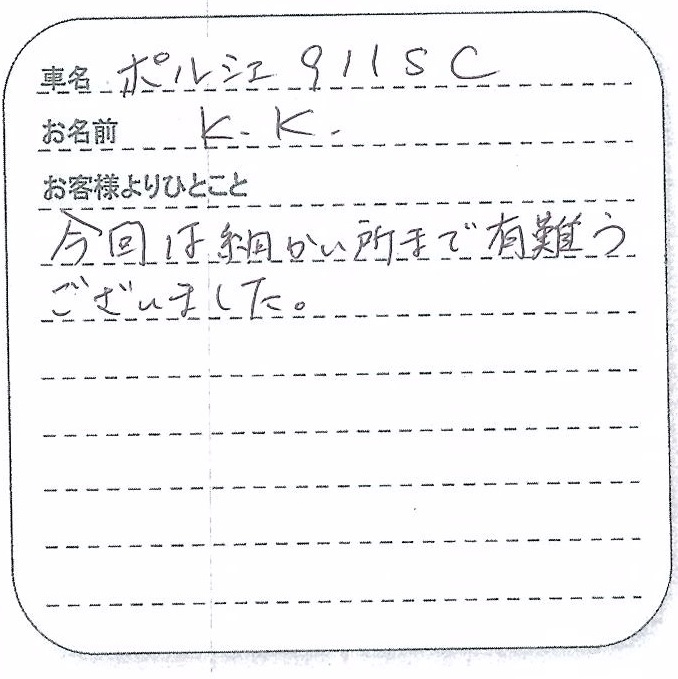 車名 ポルシェ 911SC
お名前 K.K.
お客様よりひとこと
今回は細かい所まで有難う
ございました。